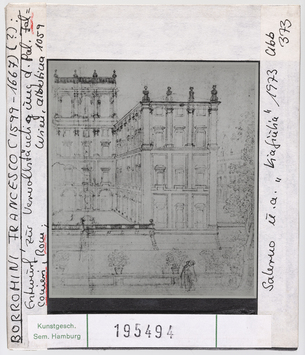 BORROMINI, FRANCESCO (1599-1667) (?):
Entwurf zur Vervollständigung d. Pal. Fal=
conieri, Rom,
Wien, Albertina 1059
Salerno u.a. „Via Giulia" 1973 Abb
373
Kunstgesch.
Sem. Hamburg
195494